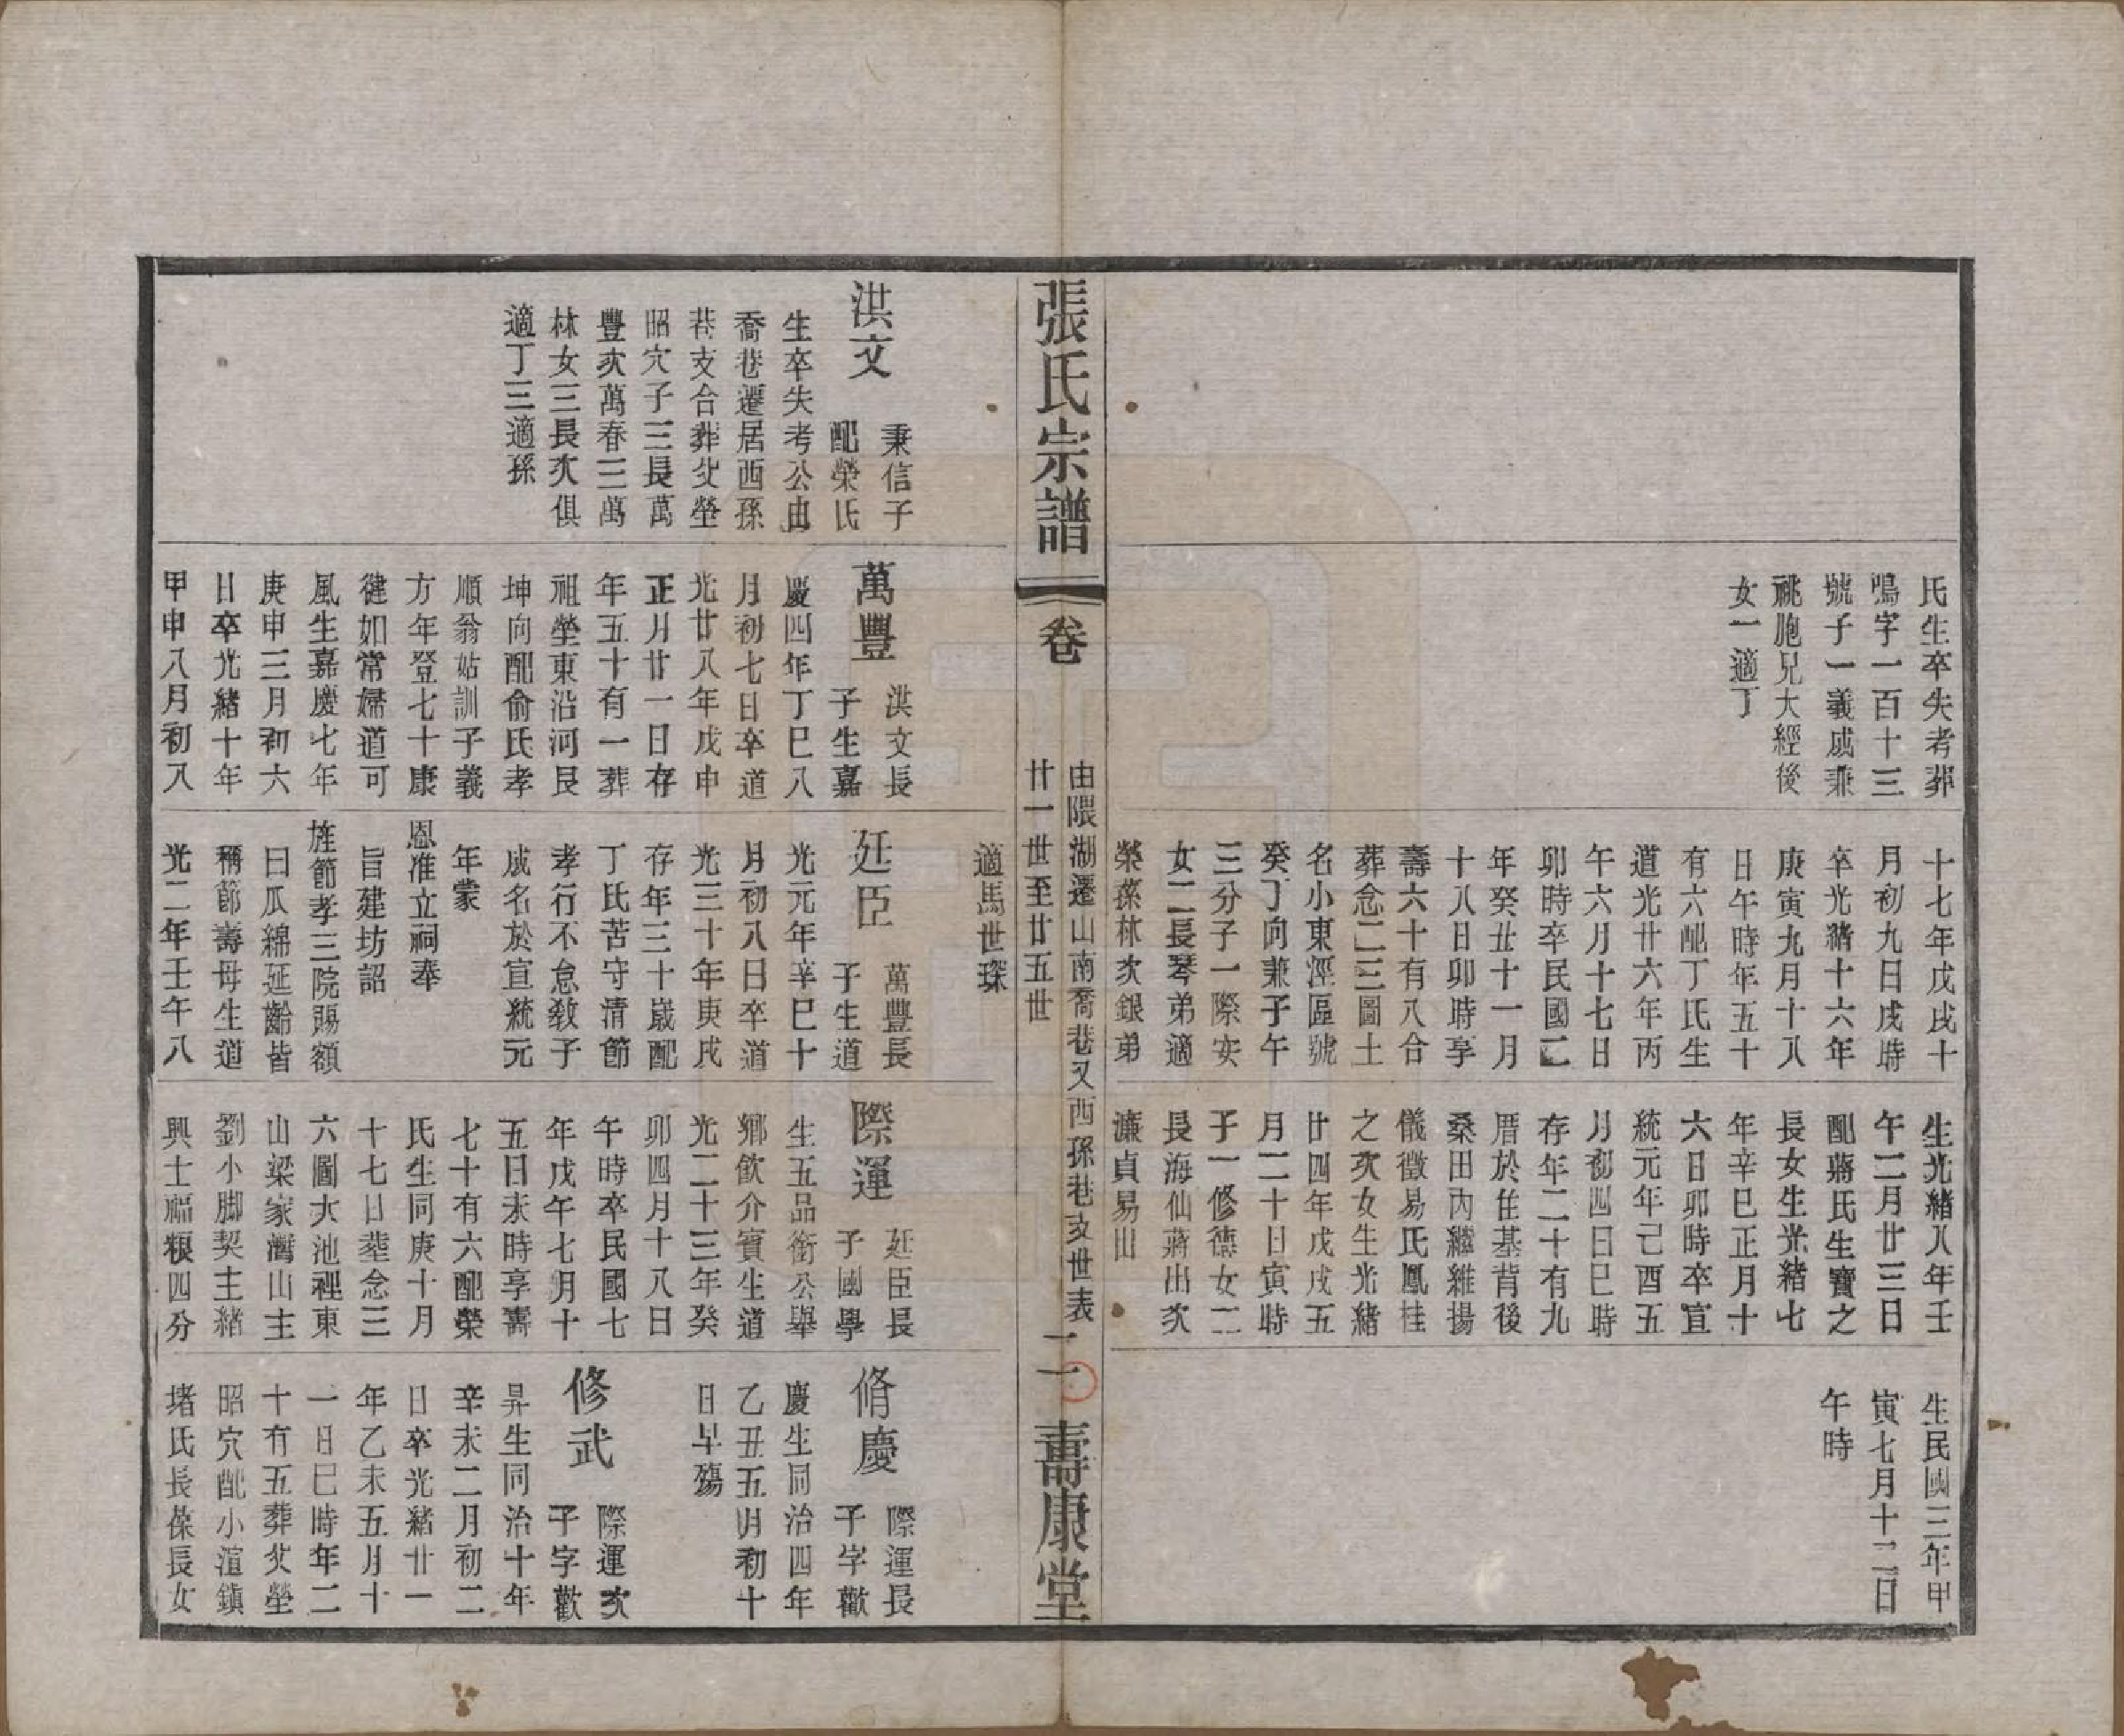 氏生卒失考葬
鳴字一百十三
號子一義成兼
祧胞兄大經後
女一適丁
十七年戊戌十
月初九日戌時
卒光緒十六年
庚寅九月十八
日午時年五十
有六配丁氏生
道光廿六年丙
午六月十七日
卯時卒民國二
年癸丑十一月
十八日卯時享
壽六十有八合
葬念二三圖土
名小東涇區號
癸丁向兼子午
三分子一際安
女二長琴弟適
榮蓀林次銀弟
生光緒八年壬
午二月廿三日
配蔣氏生寶之
長女生光緒七
年辛巳正月十
六日卯時卒宣
統元年己酉五
月初四日巳時
存年二十有九
厝於住基背後
桑田內繼維揚
儀徵易氏鳳桂
之次女生光緒
廿四年戊戌五
月二十日寅時
子一修德女二
長海仙蔣出次
濂貞易出
生民國三年甲
寅七月十二日
午時
張氏宗譜
卷
由隈湖遷山南喬巷又西孫巷支世表
廿一世至廿五世
二一
壽康堂
洪文
秉信子
配榮氏
生卒失考公由
喬巷遷居西孫
巷支合葬父塋
昭穴子三長萬
豐次萬春三萬
林女三長次俱
適丁三適孫
萬豐
洪文長
子生嘉
慶四年丁巳八
月初七日卒道
光廿八年戊申
正月廿一日存
年五十有一葬
祖塋東沿河艮
坤向配俞氏孝
順翁姑訓子義
方年登七十康
健如常婦道可
風生嘉慶七年
庚申三月初六
日卒光緒十年
甲申八月初八
適馬世琛
廷臣
萬豐長
子生道
光元年辛巳十
月初八日卒道
光三十年庚戌
存年三十歲配
丁氏苦守清節
孝行不怠教子
成名於宣統元
年蒙
恩准立祠奉
旨建坊詔
旌節孝三院賜額
曰瓜綿延齡皆
稱節壽母生道
光二年壬午八
際運
廷臣長
子國學
生五品銜公舉
鄉飲介賓生道
光二十三年癸
卯四月十八日
午時卒民國七
年戊午七月十
五日未時享壽
七十有六配榮
氏生同庚十月
十七日葬念三
六圖大池裡東
山梁家灣山主
劉小脚契主緒
興士福糧四分
脩慶
際運長
子字歡
慶生同治四年
乙丑五月初十
日早殤
修武
際運次
子字歡
昇生同治十年
辛未二月初二
日卒光緒廿一
年乙未五月十
一日巳時年二
十有五葬父塋
昭穴配小渲鎮
堵氏長葆長女